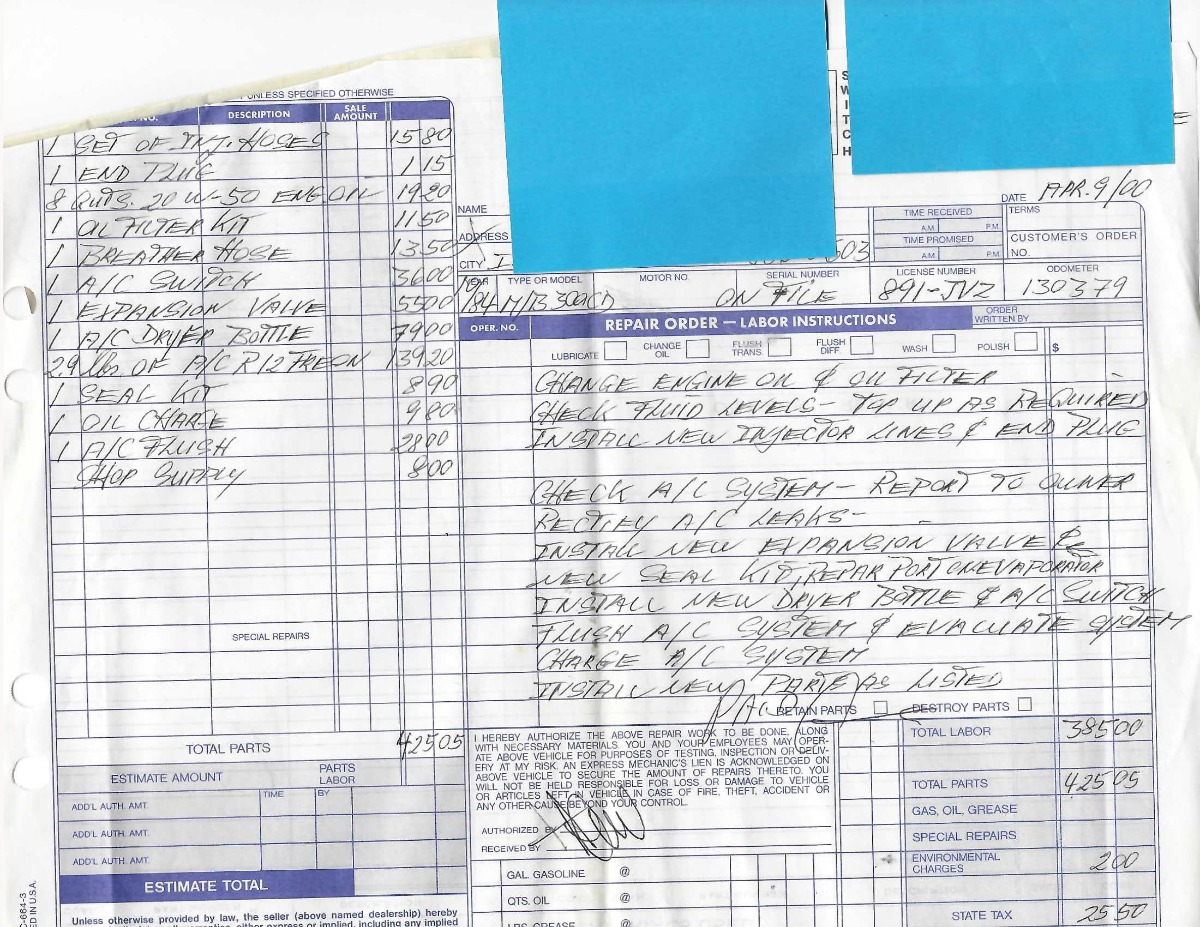 UNLESS SPECIFIED OTHERWISE
NO. DESCRIPTION SALE AMOUNT
1 SET OF INJ. HOSES 15 80
1 END PLUG 1 15
8 Quts. 20 W-50 ENG OIL 19 20
1 OIL FILTER KIT 11 50
1 BREATHER HOSE 13 50
1 A/C SWITCH 36 00
1 EXPANSION VALVE 55 00
1 A/C DRYER BOTTLE 79 00
2.9 lbs. OF A/C R12 FREON 139 20
1 SEAL KIT 8 90
1 OIL CHARGE 9 80
1 A/C FLUSH 28 00
SHOP SUPPLY 8 00
SPECIAL REPAIRS
TOTAL PARTS 425 05
ESTIMATE AMOUNT PARTS LABOR
ADD'L AUTH. AMT. TIME BY
ADD'L AUTH. AMT.
ADD'L AUTH. AMT.
ESTIMATE TOTAL
Unless otherwise provided by law, the seller (above named dealership) hereby
-664-3
ED IN U.S.A.
S
W
I
T
C
H
DATE APR. 9/00
NAME
ADDRESS
CITY
TIME RECEIVED
A.M. P.M.
TIME PROMISED
A.M. P.M.
TERMS
CUSTOMER'S ORDER NO.
YEAR TYPE OR MODEL MOTOR NO. SERIAL NUMBER LICENSE NUMBER ODOMETER
'84 M/B 300CD ON FILE 891-JVZ 130379
OPER. NO. REPAIR ORDER — LABOR INSTRUCTIONS ORDER WRITTEN BY
LUBRICATE CHANGE OIL FLUSH TRANS. FLUSH DIFF. WASH POLISH $
CHANGE ENGINE OIL & OIL FILTER
CHECK FLUID LEVELS - TOP UP AS REQUIRED
INSTALL NEW INJECTOR LINES & END PLUG
CHECK A/C SYSTEM - REPORT TO OWNER
RECTIFY A/C LEAKS -
INSTALL NEW EXPANSION VALVE &
NEW SEAL KIT, REPAR PORT ON EVAPORATOR
INSTALL NEW DRYER BOTTLE & A/C SWITCH
FLUSH A/C SYSTEM & EVACUATE SYSTEM
CHARGE A/C SYSTEM
INSTALL NEW PARTS AS LISTED
RETAIN PARTS DESTROY PARTS
I HEREBY AUTHORIZE THE ABOVE REPAIR WORK TO BE DONE, ALONG
WITH NECESSARY MATERIALS. YOU AND YOUR EMPLOYEES MAY OPER-
ATE ABOVE VEHICLE FOR PURPOSES OF TESTING, INSPECTION OR DELIV-
ERY AT MY RISK. AN EXPRESS MECHANIC'S LIEN IS ACKNOWLEDGED ON
ABOVE VEHICLE TO SECURE THE AMOUNT OF REPAIRS THERETO. YOU
WILL NOT BE HELD RESPONSIBLE FOR LOSS OR DAMAGE TO VEHICLE
OR ARTICLES LEFT IN VEHICLE IN CASE OF FIRE, THEFT, ACCIDENT OR
ANY OTHER CAUSE BEYOND YOUR CONTROL.
AUTHORIZED BY
RECEIVED BY
GAL. GASOLINE @
QTS. OIL @
LBS. GREASE @
TOTAL LABOR 385 00
TOTAL PARTS 425 05
GAS, OIL, GREASE
SPECIAL REPAIRS
ENVIRONMENTAL CHARGES 2 00
STATE TAX 25 50